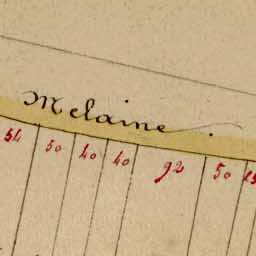 Melaine .
54 50 40 40 92 50